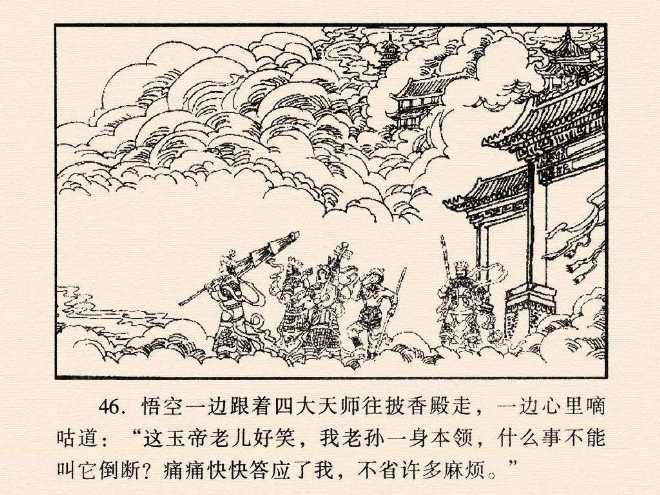 46. 悟空一边跟着四大天师往披香殿走，一边心里嘀
咕道：“这玉帝老儿好笑，我老孙一身本领，什么事不能
叫它倒断？痛痛快快答应了我，不省许多麻烦。”